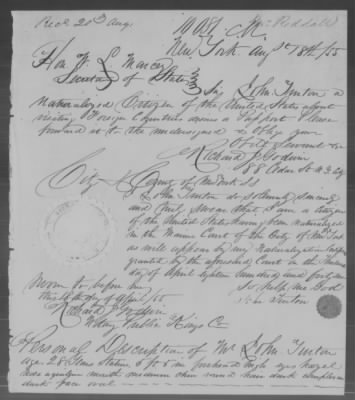 Recd 20th Aug.
New York Aug 18th /55
Hon W. L. Marcy
Secretary of State
Sir John Tinton a
Naturalized Citizen of the United States about
visiting Foreign Countries desires a Passport Please
forward it to the undersigned & Oblige your
Obdt Servant
Richard J. Godwin
88 Cedar St N.Y. City
City & County of New York SS
I John Tinton do solemnly sincerely
and truly swear that I am a Citizen
of the United States having been Naturalized
in the Marine Court of the City of New York
as will appear by my Naturalization
granted by the aforesaid Court in the
day of April
So help me God
John Tinton
Sworn to before me
this 18th day of /55
Richard J. Godwin
Notary Public Kings Co
Personal Description of Mr John Tinton
age 28 Years Stature 5 ft 6 in forehead high eyes hazel
nose aquiline mouth medium chin round hair dark complexion
dark face oval